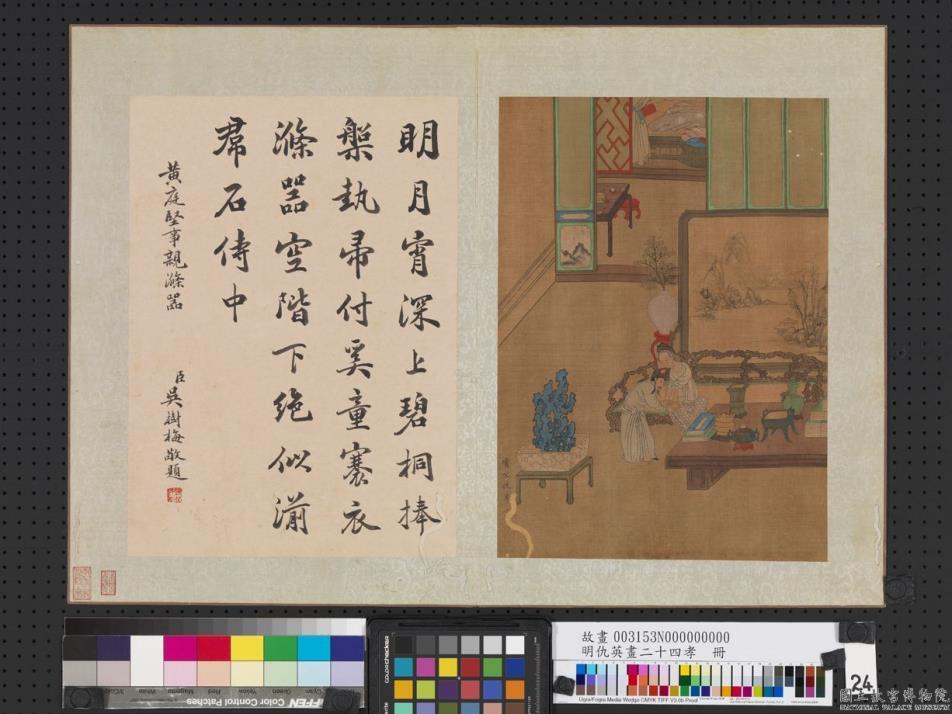 明月宵深上碧桐捧
槃執帚付奚童褰衣
滌器空階下絶似湔
帬石侍中
黃庭堅事親滌器
臣吳樹梅敬題
故畫 003153N000000000
明仇英畫二十四孝 冊
24
國立故宮博物院
NATIONAL PALACE MUSEUM
colorchecker
TIFFEN Color Control Patches
Ugra/Fogra Media Wedge CMYK TIFF V3.0b Proof